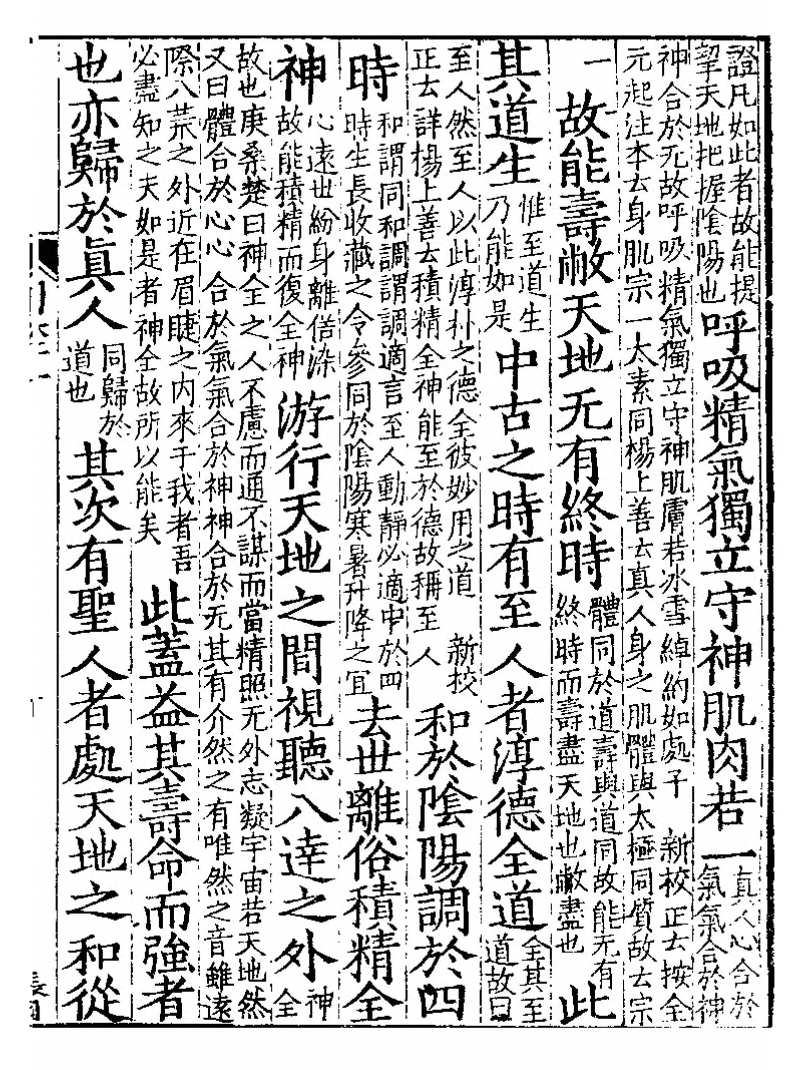 證凡如此者故能提
挈天地把握隂陽也
呼吸精氣獨立守神肌肉若一
真人心合於
氣氣合於神
神合於无故呼吸精氣獨立守神肌膚若冰雪綽約如處子 新校正云按全
元起注本云身肌宗一太素同楊上善云真人身之肌體與太極同質故云宗
一
故能壽敝天地无有終時
體同於道壽與道同故能无有
終時而壽盡天地也敝盡也
此
其道生
惟至道生
乃能如是
中古之時有至人者淳德全道
全其至
道故曰
至人然至人以此淳朴之德全彼妙用之道 新校
正云詳楊上善云積精全神能至於德故稱至人
和於隂陽調於四
時
和謂同和調謂調適言至人動靜必適中於四
時生長收藏之令參同於隂陽寒暑升降之宜
去世離俗積精全
神
心遠世紛身離俗染
故能積精而復全神
游行天地之間視聽八逹之外
神
全
故也庚桑楚曰神全之人不慮而通不謀而當精照无外志凝宇宙若天地然
又曰體合於心心合於氣氣合於神神合於无其有介然之有唯然之音雖遠
際八荒之外近在眉睫之内來于我者吾
必盡知之夫如是者神全故所以能矣
此蓋益其壽命而強者
也亦歸於真人
同歸於
道也
其次有聖人者處天地之和從